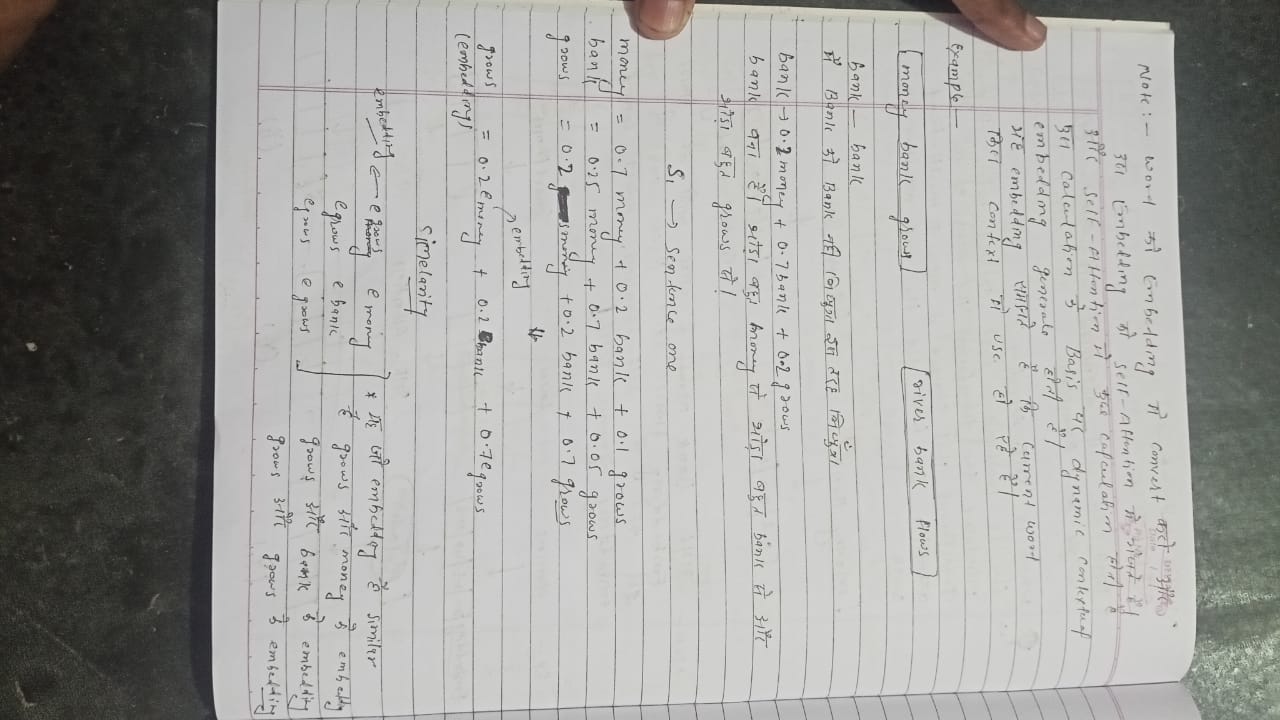 Note :- word को Embedding में convert करो और
उस Embedding को self-Attention में भेजते है।
और self-Attention में कुछ calculation होती है
इस calculation के Basis पर dynamic contextual
embedding generate होती है।
यह embedding समझाते है कि current word
किस context में use हो रहे है।
Example -
money bank grows
river bank flows
bank - bank
मैं Bank को Bank नही लिखूंगा इस तरह लिखूँगा
bank → 0.2 money + 0.7 bank + 0.2 grows
bank बना है। थोड़ा बहुत money से थोड़ा बहुत bank से और
थोड़ा बहुत grows से।
S₁ → Sentence one
money = 0.7 money + 0.2 bank + 0.1 grows
bank = 0.25 money + 0.7 bank + 0.05 grows
grows = 0.2 money + 0.2 bank + 0.7 grows
embedding
grows = 0.2 e money + 0.2 e bank + 0.7 e grows
(embeddings)
Simelarity
embedding ← e grows e money
e grows e bank
e grows e grows
* यह जो embedding है similar
है grows और money के embedding
grows और bank के embedding
grows और grows के embedding